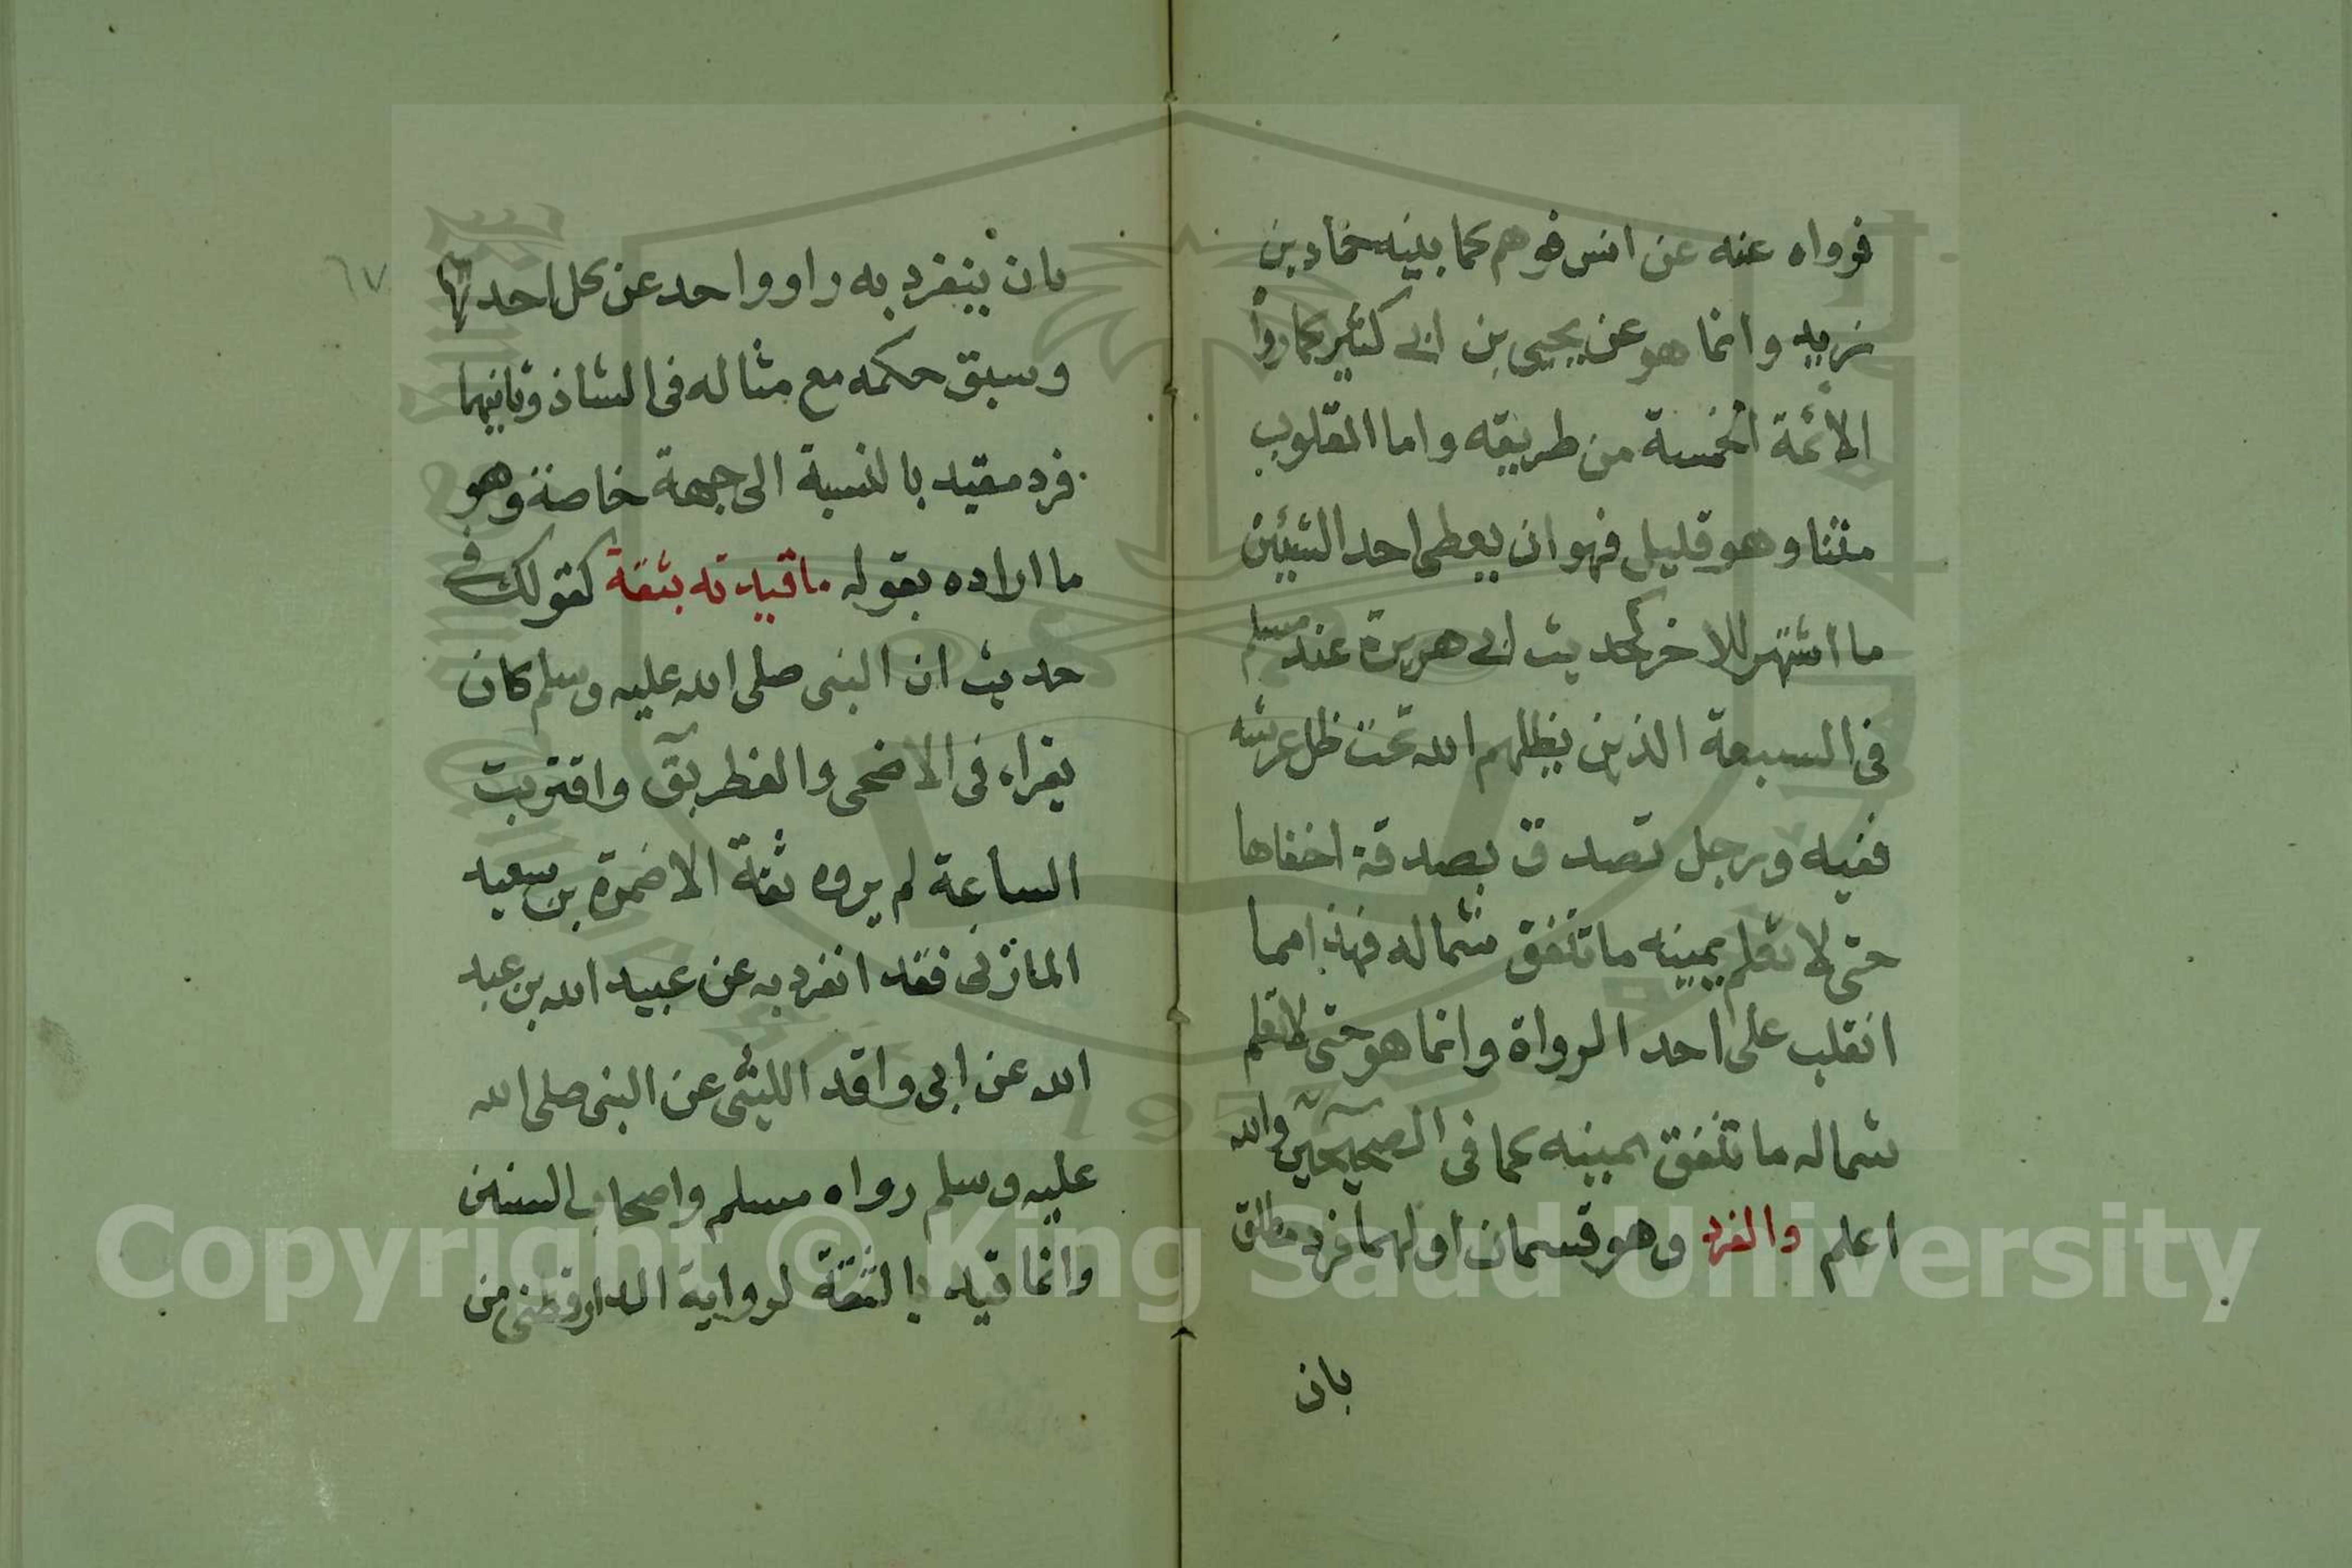 فرواه عنه عن انس فوهم كما بينه حماد بن
زيد وانما هو عن يحيى بن ابي كثير كما رواه
الأئمة الخمسة من طريقه واما المقلوب
متنا وهو قليل فهو ان يعطى احد الشيئين
ما اشتهر للاخر كحديث ابي هريرة عند مسلم
فى السبعة الذين يظلهم الله تحت ظل عرشه
ففيه ورجل تصدق بصدقة اخفاها
حتى لا تعلم يمينه ما تنفق شماله فهذا مما
انقلب على احد الرواة وانما هو حتى لا تعلم
شماله ما تنفق يمينه كما فى الصحيحين والله
اعلم والفرد وهو قسمان اولهما فرد مطلق
بان
بان ينفرد به راو واحد عن كل احد
وسبق حكمه مع مثاله فى الشاذ وثانيهما
فرد مقيد بالنسبة الى جهة خاصة وهو
ما اراده بقوله ما قيدته بثقة كقولك فى
حديث ان النبى صلى الله عليه وسلم كان
يقراء فى الاضحى والفطر بق واقتربت
الساعة لم يروه ثقة الا ضمرة بن سعيد
المازنى فقد انفرد به عن عبيد الله بن عبد
الله عن ابى واقد الليثى عن النبى صلى الله
عليه وسلم رواه مسلم واصحاب السنن
وانما قيد بالثقة لرواية الدارقطنى من
٦٧
Copyright © King Saud University
1957